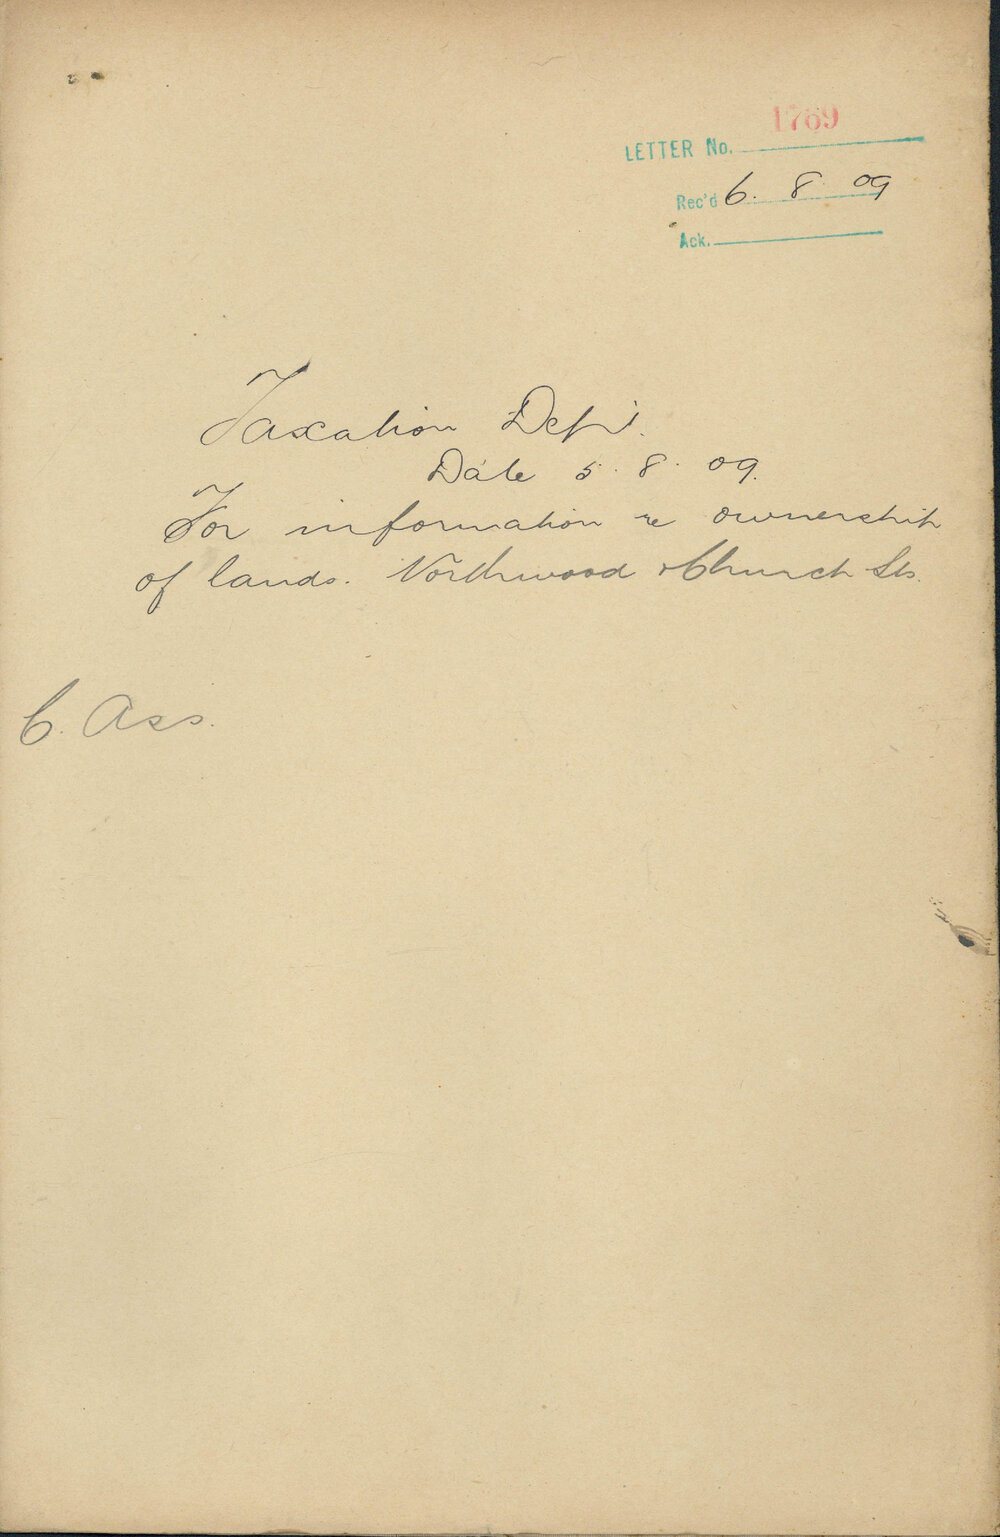 LETTER No. 1769
Rec'd 6. 8. 09
Ack.
Taxation Dept.
Date 5. 8. 09.
For information re ownership
of lands. Northwood & Church Sts.
C. Ass.